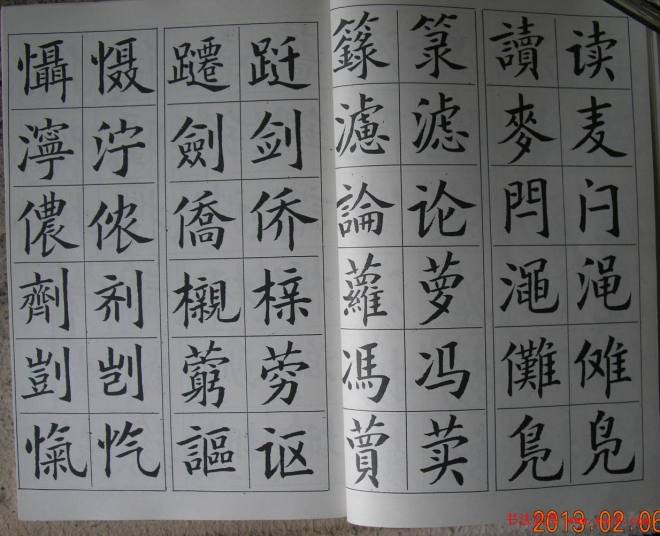 懾 慑 躚 跹 籙 箓 讀 读
濘 泞 劍 剑 濾 滤 麥 麦
儂 侬 僑 侨 論 论 閂 闩
劑 剂 櫬 榇 蘿 萝 澠 渑
剴 剀 藭 䓖 馮 冯 儺 傩
愾 忾 謳 讴 蕒 荬 鳧 凫
2013.02.06